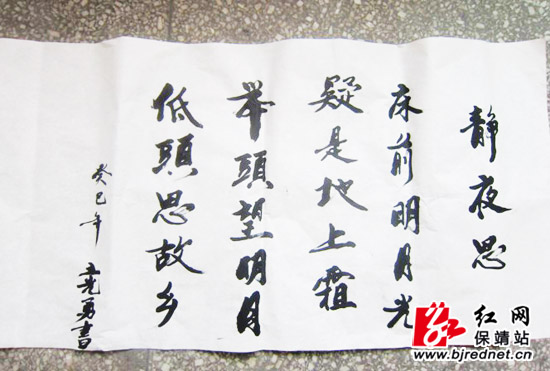 静夜思
床前明月光
疑是地上霜
举頭望明月
低頭思故乡
癸巳年
勇書
红网
保靖站
www.bjrednet.cn